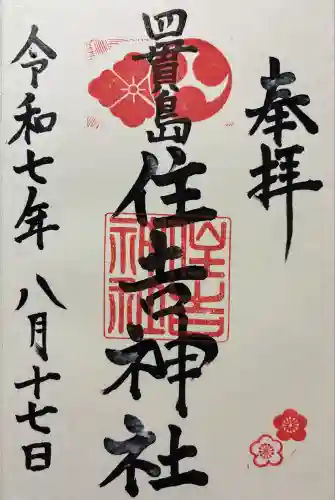 奉拝
四貫島
住吉神社
令和七年 八月十七日
住吉神社